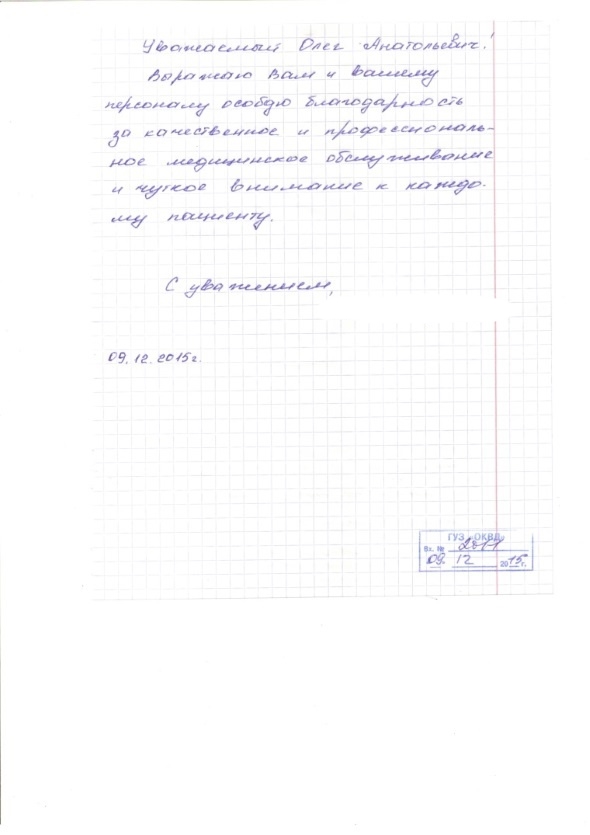 Уважаемый Олег Анатольевич!
Выражаю Вам и Вашему
персоналу особую благодарность
за качественное и профессиональ-
ное медицинское обслуживание
и чуткое внимание к каждо-
му пациенту.
С уважением,
09.12.2015г.
ГУЗ «ОКВД»
Вх. № 2011
09. 12 2015г.